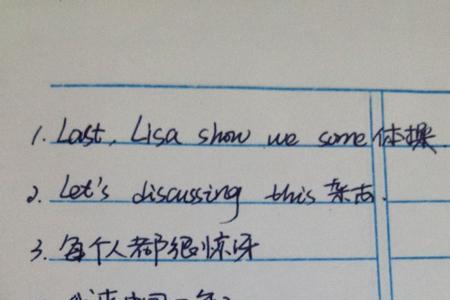 1. Last, Lisa show we some 体操.
2. Let's discussing this 杂志.
3. 每个人都很惊讶